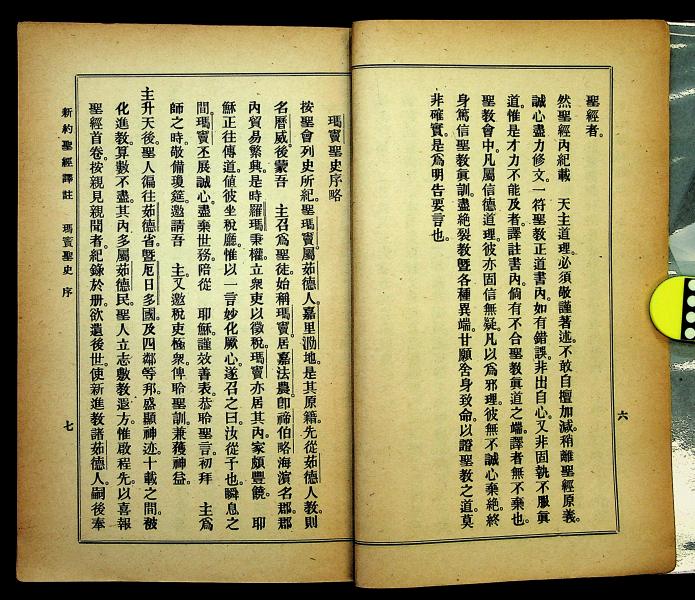 聖經者。
然聖經內紀載　天主道理。必須敬謹著述。不敢自擅加減。稍離聖經原義。
誠心盡力修文。一符聖教正道。書內如有錯誤。非出自心。又非固執不服眞
道。惟是才力不能及者。譯註書內。倘有不合聖教眞道之端。譯者無不棄也。
聖教會中。凡屬信德道理。彼亦固信無疑。凡以爲邪理。彼無不誠心棄絕。終
身篤信聖教眞訓。盡絕裂教暨各種異端。甘願舍身致命。以證聖教之道。莫
非確實。是爲明告要言也。
六
瑪竇聖史序略
按聖會列史所紀。聖瑪竇屬茹德人。嘉里泐地。是其原籍。先從茹德人教。則
名曆威。後蒙吾　主召爲聖徒。始稱瑪竇。居嘉法農。卽禘伯略海濱名郡。郡
內貿易繁興。是時羅瑪秉權。立衆吏以徵稅。瑪竇亦居其內。家頗豐饒。　耶
穌正往傳道。値彼坐稅廳。惟以一言妙化厥心。遂召之曰。汝從予也。瞬息之
間。瑪竇丕展誠心。盡棄世務。陪從　耶穌。謹效善表。恭聆聖言。初拜　主爲
師之時。敬備瓊筵。邀請吾　主。又邀稅吏極衆。俾聆聖訓。兼獲神益。
主升天後。聖人徧往茹德省。暨厄日多國。及四鄰等邦。盛顯神迹。十載之間。被
化進教。算數不盡。其內多屬茹德民。聖人立志敷教遐方。惟啟程先。以喜報
聖經首卷。按親見親聞者。紀錄於册。欲遺後世。使新進教諸茹德人。嗣後奉
新約聖經譯註　瑪竇聖史　序
七